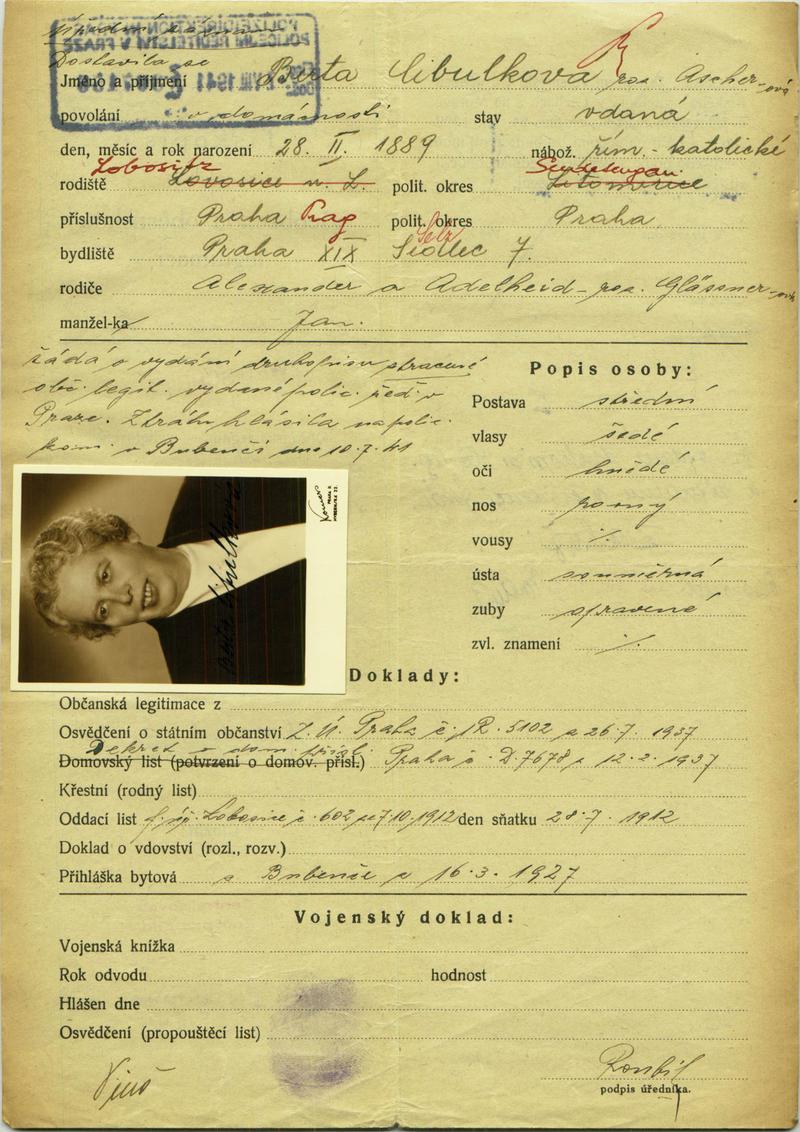 POLIZEIDIREKTION IN PRAG
POLICEJNÍ ŘEDITELSTVÍ V PRAZE
VIII. 1941
Dostavila se
Jméno a příjmení Berta Cibulkova roz. Ascher-ová
povolání v domácnosti stav vdaná
den, měsíc a rok narození 28. II. 1889 nábož. řím.-katolické
Lobositz
rodiště Lovosice n. L. polit. okres Litoměřice
příslušnost Praha Prag polit. okres Praha
Selz
bydliště Praha XIX Sedlec 7.
rodiče Alexander a Adelheid roz. Glässner-ová
manžel-ka Jan.
žádá o vydání druhopisu ztracené
obč. legit. vydané polic. řed. v
Praze. Ztrátu hlásila na polic.
kom. v Bubenči dne 10.7.41
Popis osoby:
Postava střední
vlasy šedé
oči hnědé
nos rovný
vousy ./.
ústa souměrná
zuby spravené
zvl. znamení ./.
Berta Cibulkova
Doklady:
Občanská legitimace z
Osvědčení o státním občanství Z. Ú. Praha č. j. R. 5102 z 26.7. 1937
Dekret o dom. přísl.
Domovský list (potvrzení o domov. přísl.) Praha č. D.7678 z 12.2.1937
Křestní (rodný list)
Oddací list Lobosice č. 602 ze 7.10.1912 den sňatku 28.7. 1912
Doklad o vdovství (rozl., rozv.)
Přihláška bytová z Bubenče z 16.3.1927
Vojenský doklad:
Vojenská knížka
Rok odvodu hodnost
Hlášen dne
Osvědčení (propouštěcí list)
podpis úředníka.